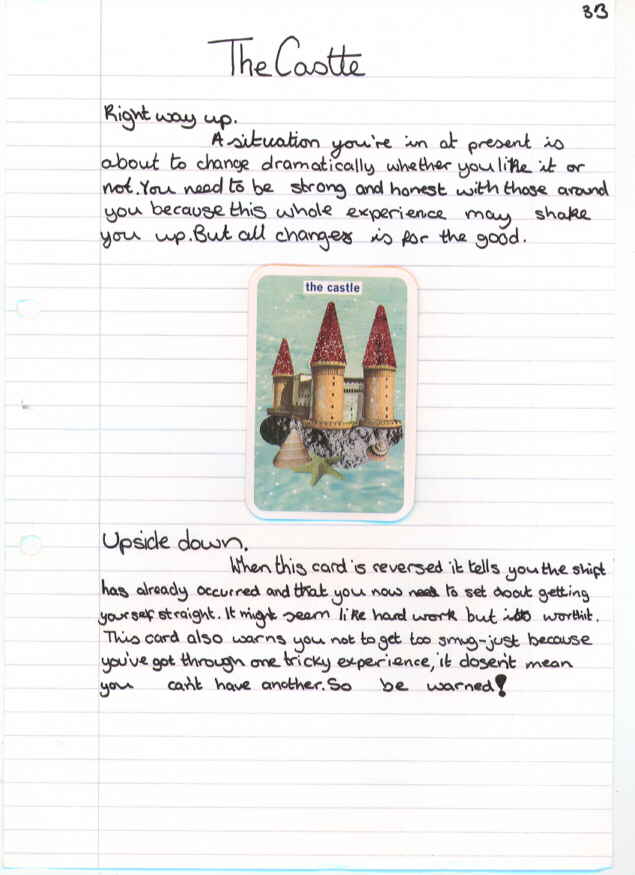 33
The Castle
Right way up.
A situation you're in at present is
about to change dramatically whether you like it or
not. You need to be strong and honest with those around
you because this whole experience may shake
you up. But all changes is for the good.
the castle
Upside down.
When this card is reversed it tells you the shift
has already occurred and that you now need to set about getting
yourself straight. It might seem like hard work but its worthit.
This card also warns you not to get too smug-just because
you've got through one tricky experience, it dosen't mean
you can't have another. So be warned!